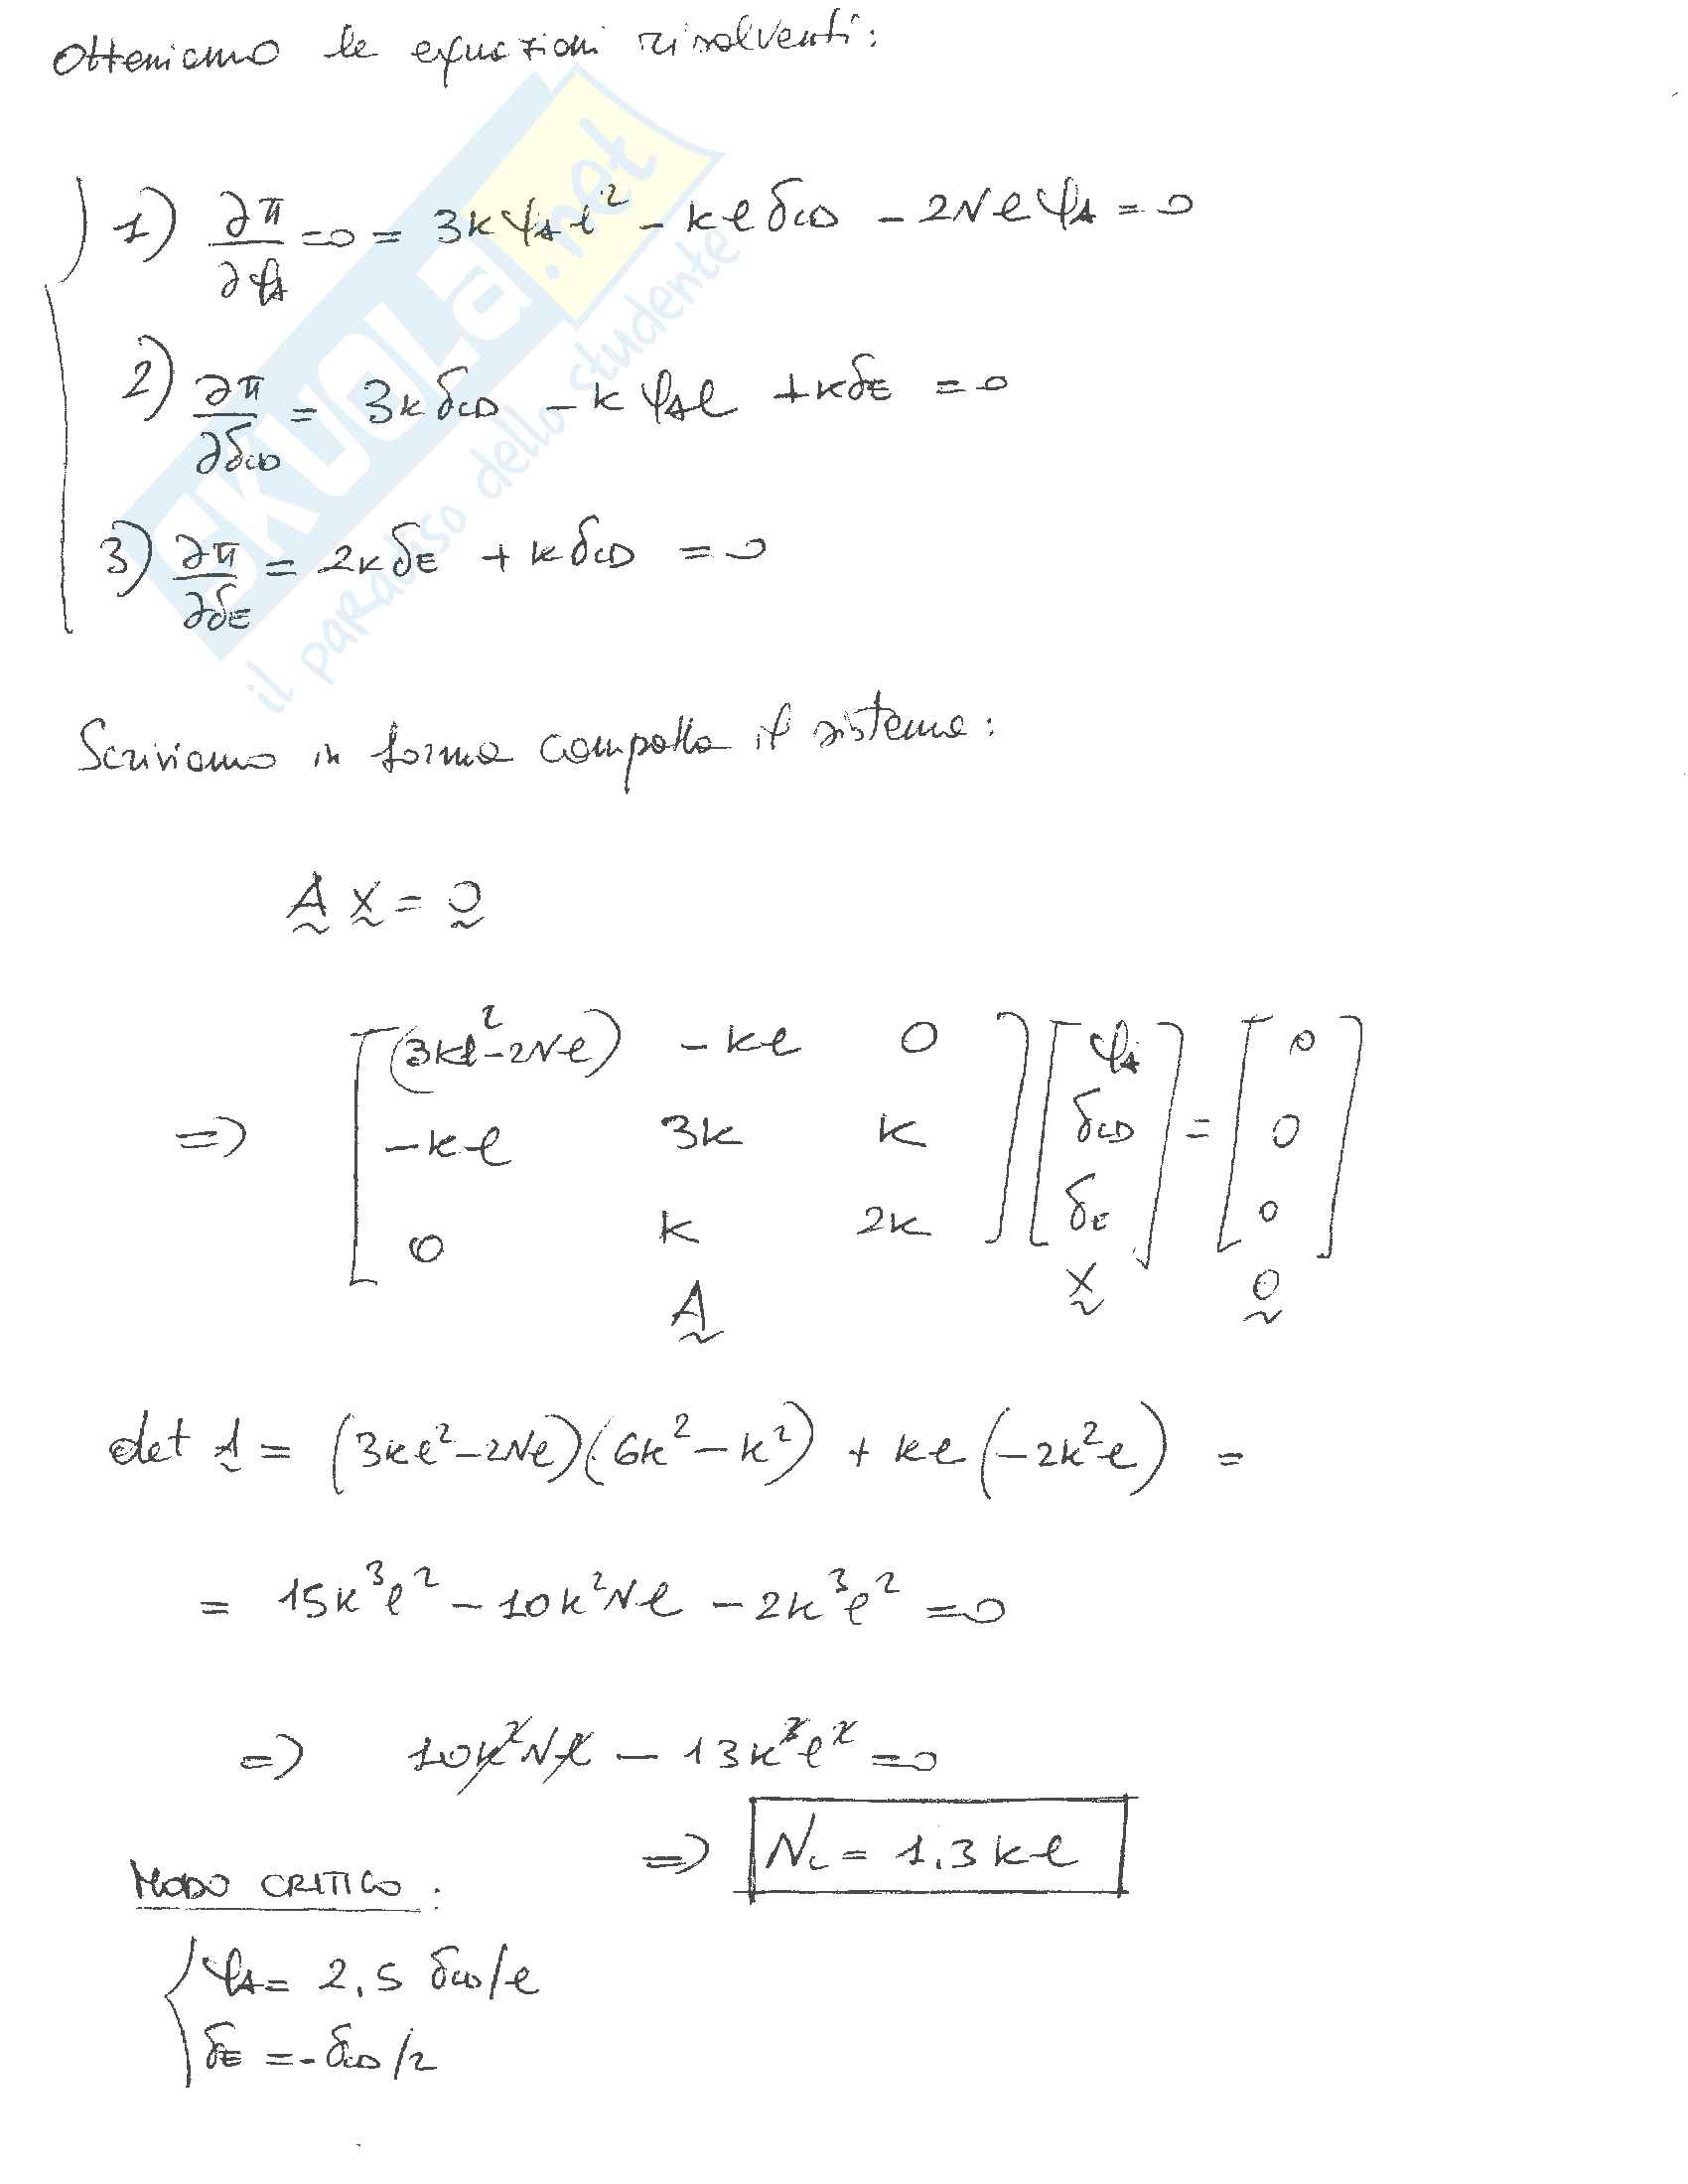 Otteniamo le equazioni risolventi:
1) ∂π/∂φA = 0 = 3kφAl² - klδCD - 2NlφA = 0
2) ∂π/∂δCD = 3kδCD - kφAl + kδE = 0
3) ∂π/∂δE = 2kδE + kδCD = 0
Scriviamo in forma compatta il sistema:
A x = 0
=> [(3kl²-2Nl) -kl 0] [φA] = [0]
[-kl 3k k] [δCD] [0]
[0 k 2k] [δE] [0]
A x 0
det A = (3kl²-2Nl)(6k²-k²) + kl(-2k²l) =
= 15k³l² - 10k²Nl - 2k³l² = 0
=> 10k²Nl - 13k³l² = 0
=> Nc = 1.3kl
MODO CRITICO:
φA = 2,5 δCD/l
δE = -δCD/2
SKUOLA.net
il paradiso dello studente